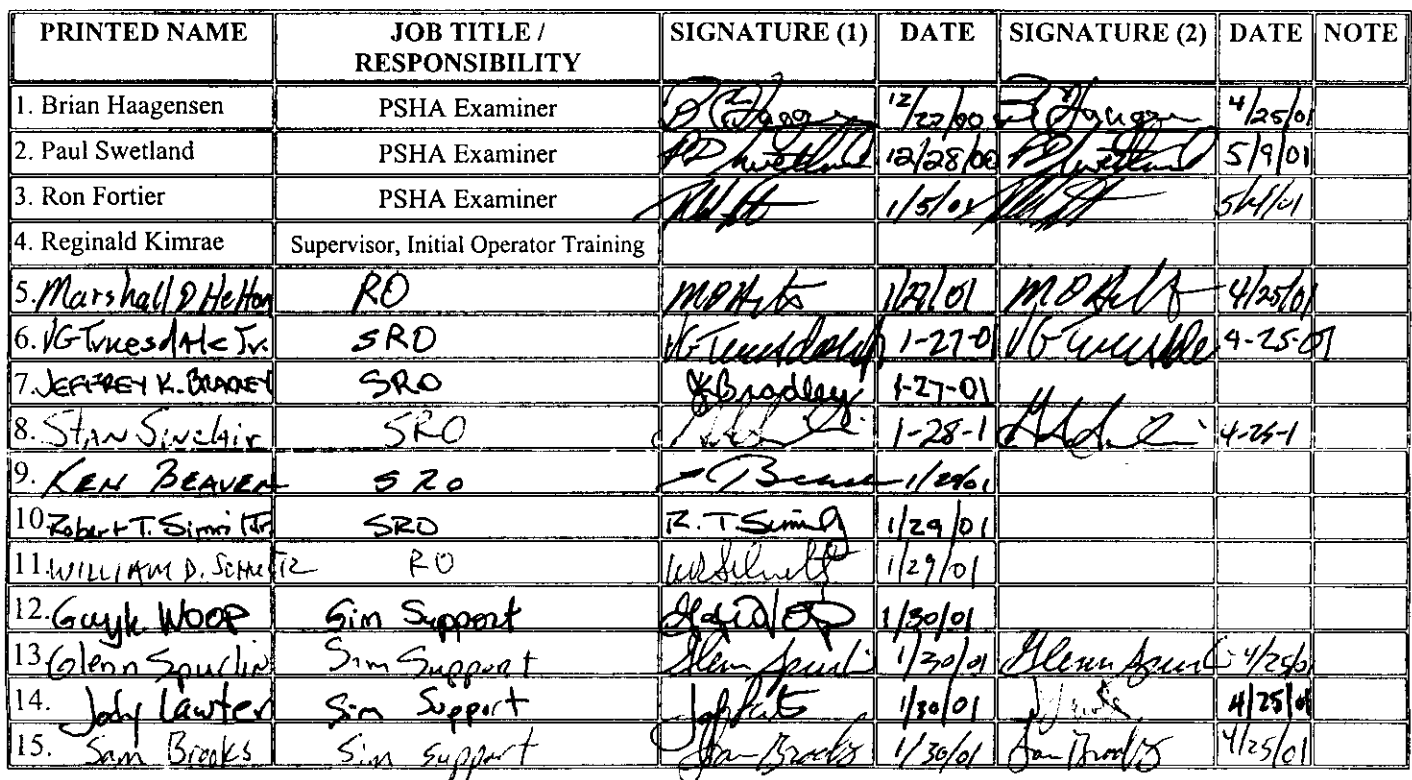 PRINTED NAME JOB TITLE / RESPONSIBILITY SIGNATURE (1) DATE SIGNATURE (2) DATE NOTE
1. Brian Haagensen PSHA Examiner 12/22/00 4/25/01
2. Paul Swetland PSHA Examiner PD Swetland 12/28/00 PD Swetland 5/9/01
3. Ron Fortier PSHA Examiner 1/5/01
4. Reginald Kimrae Supervisor, Initial Operator Training
5. Marshall D Helton RO 1/27/01 4/25/01
6. VG Truesdale Jr. SRO VG Truesdale 1-27-01 VG Truesdale 4-25-01
7. JEFFREY K. BRADLEY SRO JKBradley 1-27-01
8. STAN Sinclair SRO 1-28-1 4-25-1
9. KEN BEAVER SRO 1/29/01
10. Robert T. SRO R. T. 1/29/01
11. WILLIAM D. RO 1/29/01
12. Guy k. WOOD Sim Support 1/30/01
13. Glenn Spurlin Sim Support Glenn Spurli 1/30/01 Glenn Spurli 4/25/01
14. Jody Lawter Sim Support 1/30/01 4/25/01
15. Sam Brooks Sim Support Sam Brooks 1/30/01 Sam Brooks 4/25/01